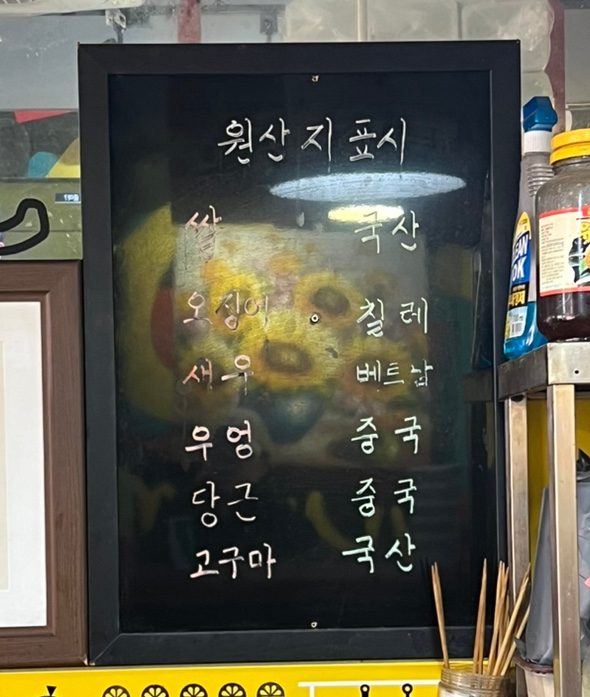 원산지표시
쌀 국산
오징어 칠레
새우 베트남
우엉 중국
당근 중국
고구마 국산